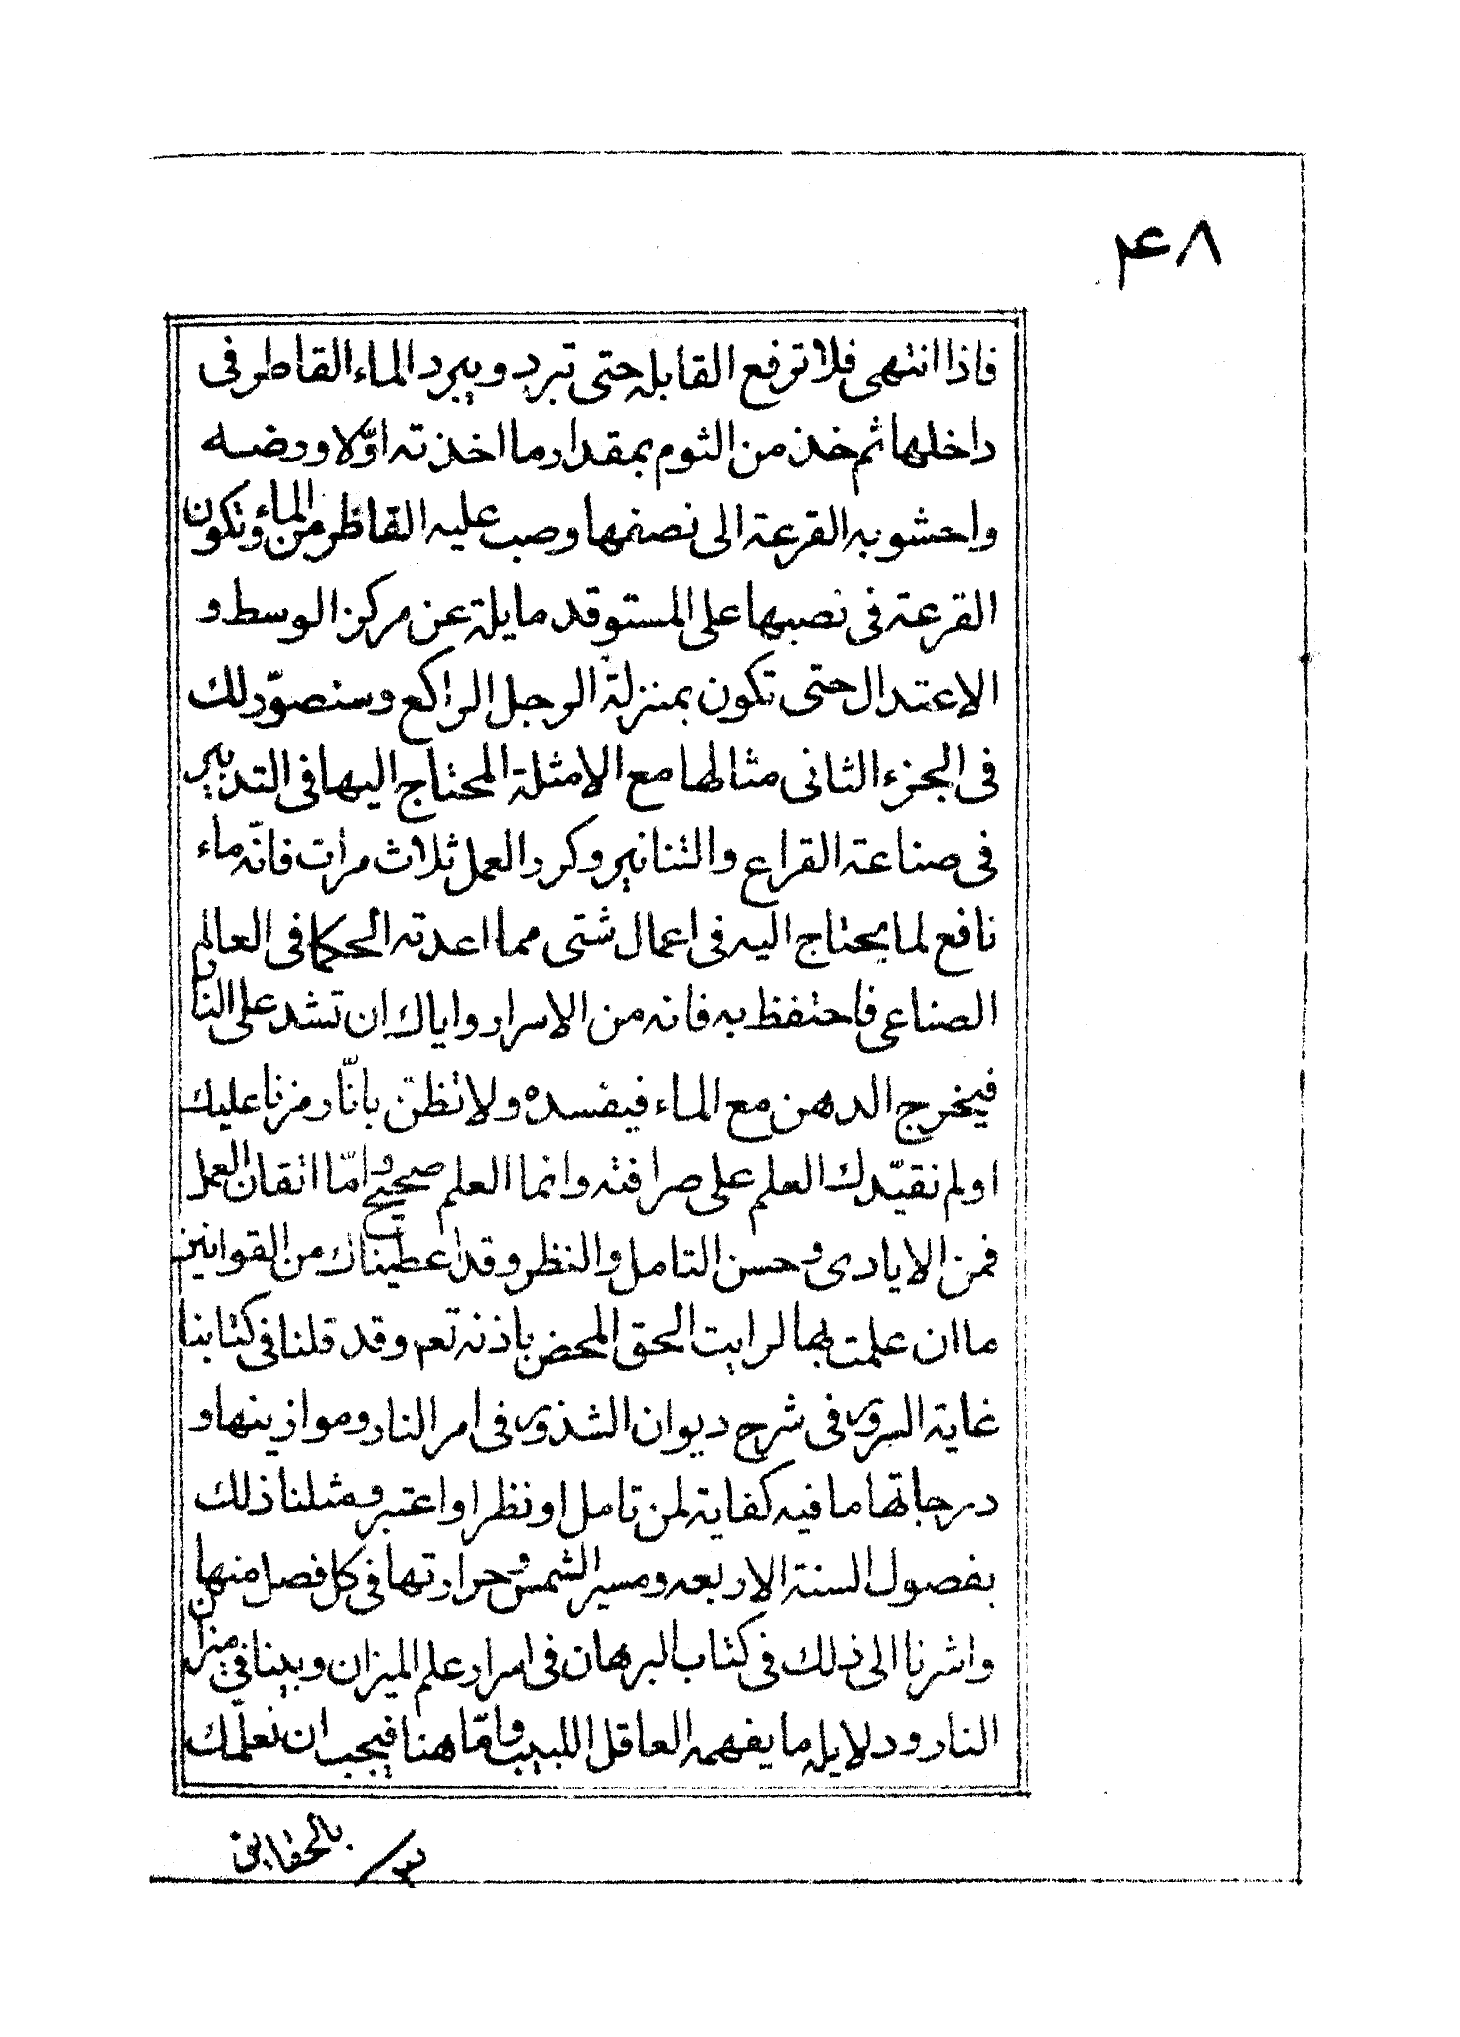 ۴۸
فاذا انتهى فلا ترفع القابلة حتى تبرد ويبرد الماء القاطر فى
داخلها ثم خذ من الثوم بمقدار ما اخذته اوّلا ورضه
واحشو به القرعة الى نصفها وصب عليه القاطر من الماء وتكون
القرعة فى نصبها على المستوقد مايلة عن مركز الوسط و
الاعتدال حتى تكون بمنزلة الرجل الراكع وسنصوّر لك
فى الجزء الثانى مثالها مع الامثلة المحتاج اليها فى التدبير
فى صناعة القراع والتنانير وكرر العمل ثلاث مرات فانّه ماء
نافع لما يحتاج اليه فى اعمال شتى مما اعدته الحكما فى العالم
الصناعى فاحتفظ به فانه من الاسرار واياك ان تشد على النار
فيخرج الدهن مع الماء فيفسده ولا تظن بانّا رمزنا عليك
او لم نقيّد لك العلم على صرافته وانما العلم صحيح وامّا اتقان العمل
فمن الايادى وحسن التامل والنظر وقد اعطيناك من القوانين
ما ان علمت بها لرايت الحق المحض باذنه تعم وقد قلنا فى كتابنا
غاية السرور فى شرح ديوان الشذور فى امر النار وموازينها و
درجاتها ما فيه كفاية لمن تامل او نظر او اعتبر ومثلنا ذلك
بفصول السنة الاربعه ومسير الشمس وحرارتها فى كل فصل منها
واشرنا الى ذلك فى كتاب البرهان فى اسرار علم الميزان وبينا فى ميزان
النار ودلايله ما يفهمه العاقل اللبيب وامّا هنا فيجب ان نعلّمك
بالحقايق